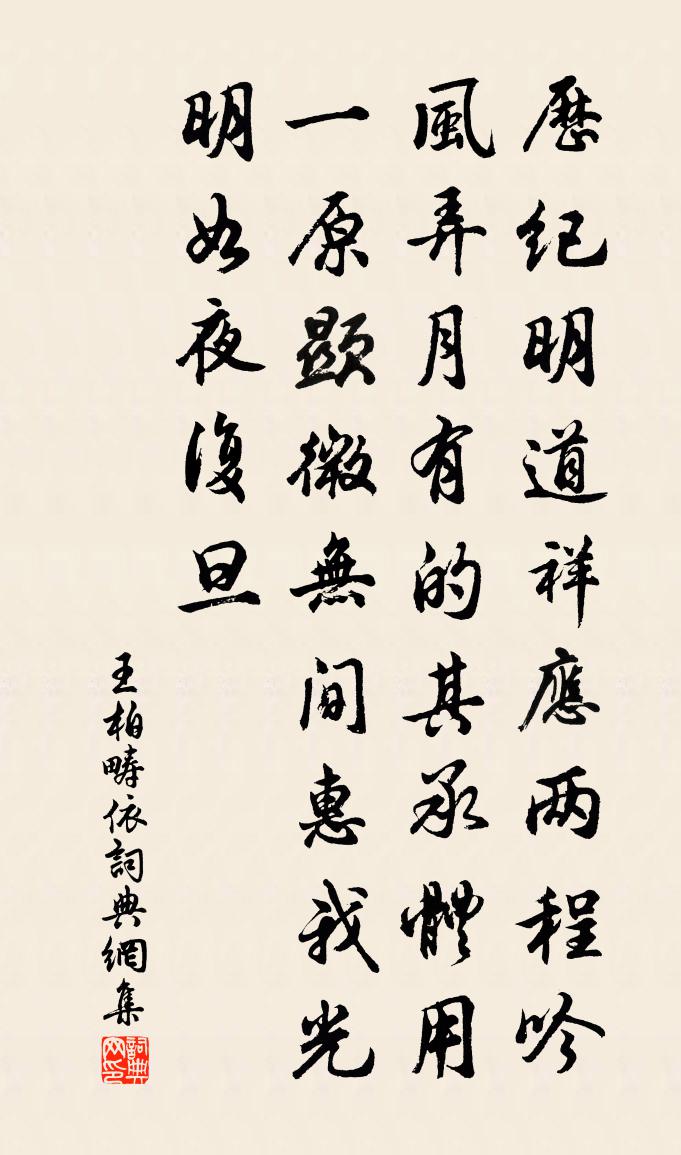 歷紀明道祥應两程吟
風弄月有的其承體用
一原顯微無間惠我光
明如夜復旦
王柏疇依詞典網集
詞典网印